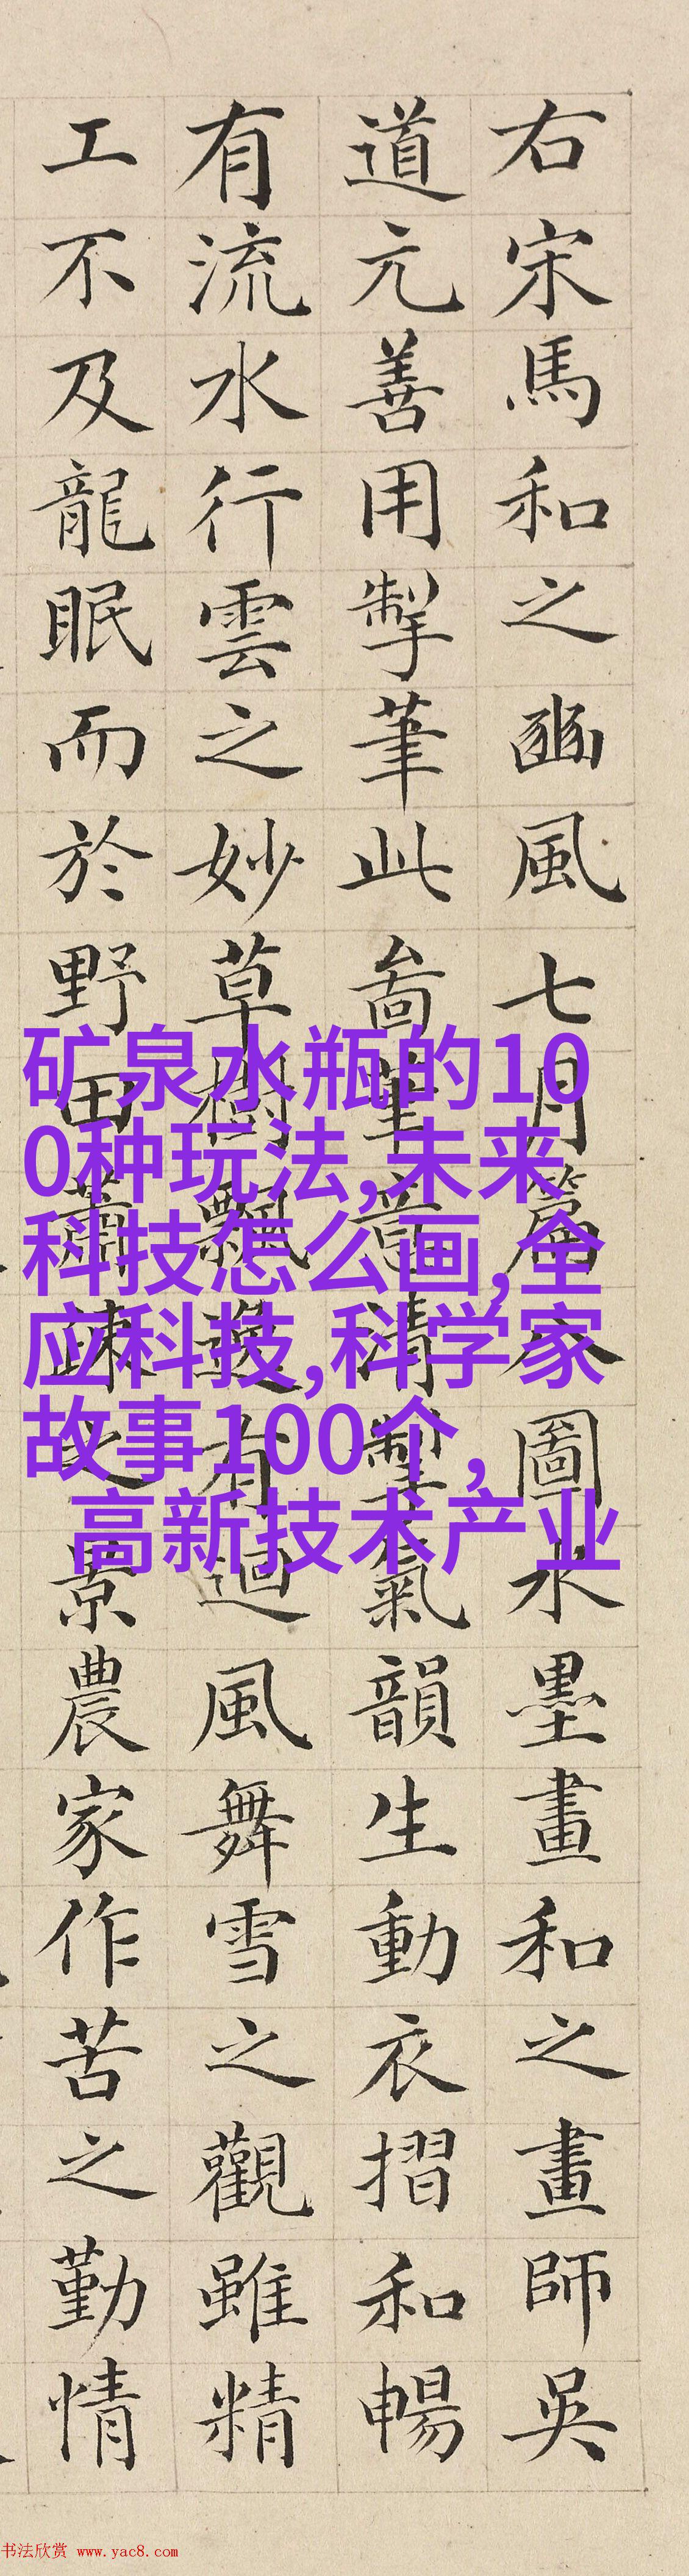 右宋馬和之豳風七月篇八圖水墨畫和之畫師吳
道元善用掣筆此啚筆意清氣韻生動衣摺和暢
有流水行雲之妙草樹飄逸有迴風舞雪之觀雖精
工不及龍眠而於野田蕭疎之景農家作苦之勤情
矿泉水瓶的10
0种玩法,未来
科技怎么画,全
应科技,科学家
故事100个,
高新技术产业
书法欣赏 www.yac8.com